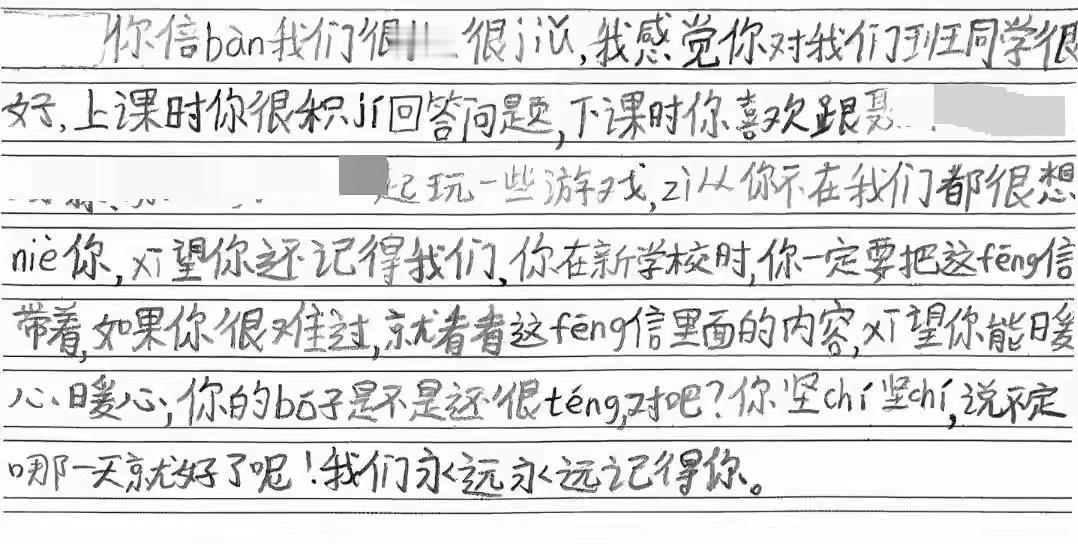 你倍bàn我们很 很jiǔ,我感觉你对我们班同学很
好,上课时你很积jí回答问题,下课时你喜欢跟
起玩一些游戏,zì从你不在我们都很想
niè你,xī望你还记得我们,你在新学校时,你一定要把这fēng信
带着,如果你很难过,就看看这fēng信里面的内容,xī望你能暖
心暖心,你的bó子是不是还很téng,对吧?你坚chí坚chí,说不定
哪一天就好了呢!我们永远永远记得你。